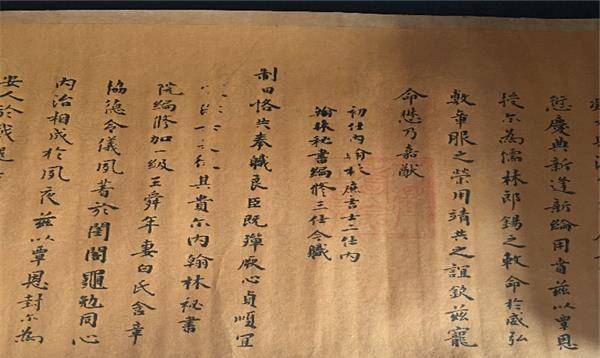 愆慶典新逢新綸用賁茲以覃恩
授尓為儒林郎錫之敕命於戲弘
敷章服之榮用靖共之誼欽茲寵
命懋乃嘉猷
初任內翰林庶吉士二任內
翰林秘書編修三任今職
制曰恪共奉職良臣既殫厥心貞順宜
其貴尓內翰林秘書
院編修加一級王舜年妻白氏含章
協德令儀夙著於閨閫黽勉同心
內治相成於夙夜茲以覃恩封尓為
安人於戲